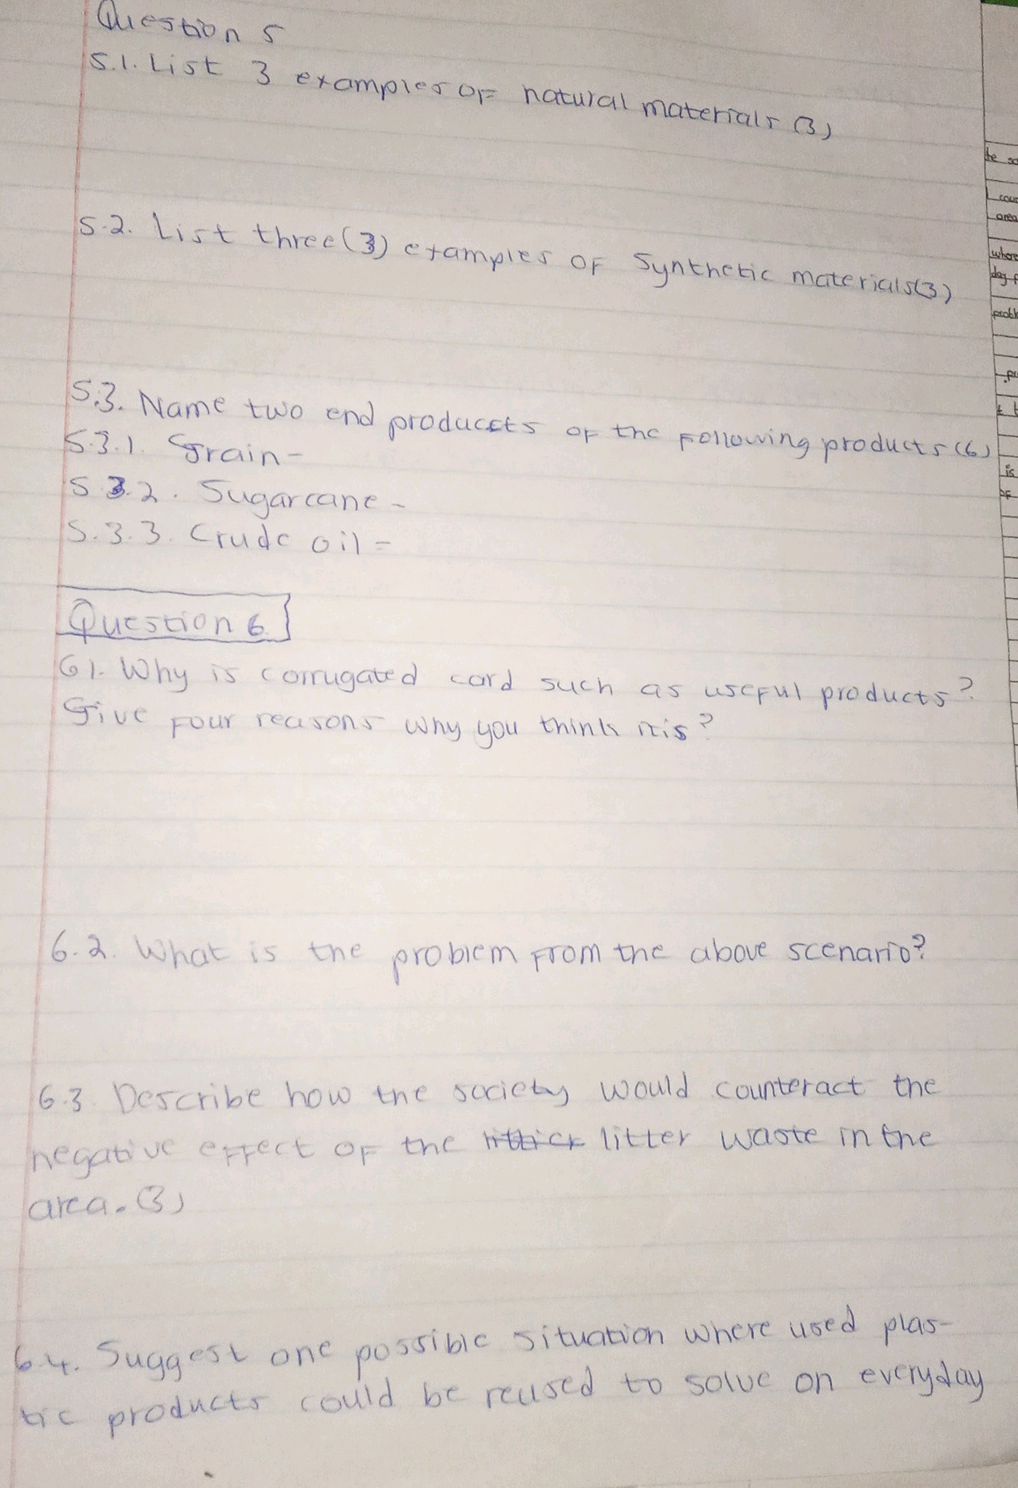 Question 5
5.1. List 3 examples of natural materials (3)
5.2. List three (3) examples of Synthetic materials (3)
5.3. Name two end products of the following products (6)
5.3.1. Grain -
5.3.2. Sugarcane -
5.3.3. Crude oil -
Question 6
6.1. Why is corrugated card such as useful products?
Give four reasons why you think it is?
6.2. What is the problem from the above scenario?
6.3 Describe how the society would counteract the
negative effect of the litter waste in the
area. (3)
6.4. Suggest one possible situation where used plas-
tic products could be reused to solve on everyday
where
is
of